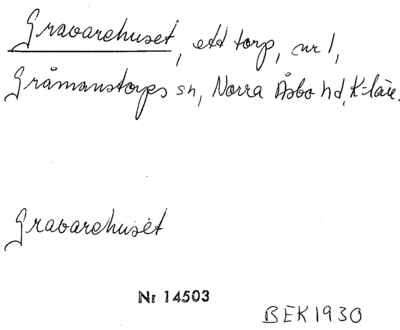 Gravarehuset, ett torp, nr 1,
Gråmanstorps sn, Norra Åsbo hd, K-län.
Gravarehuset
Nr 14503
BEK1930